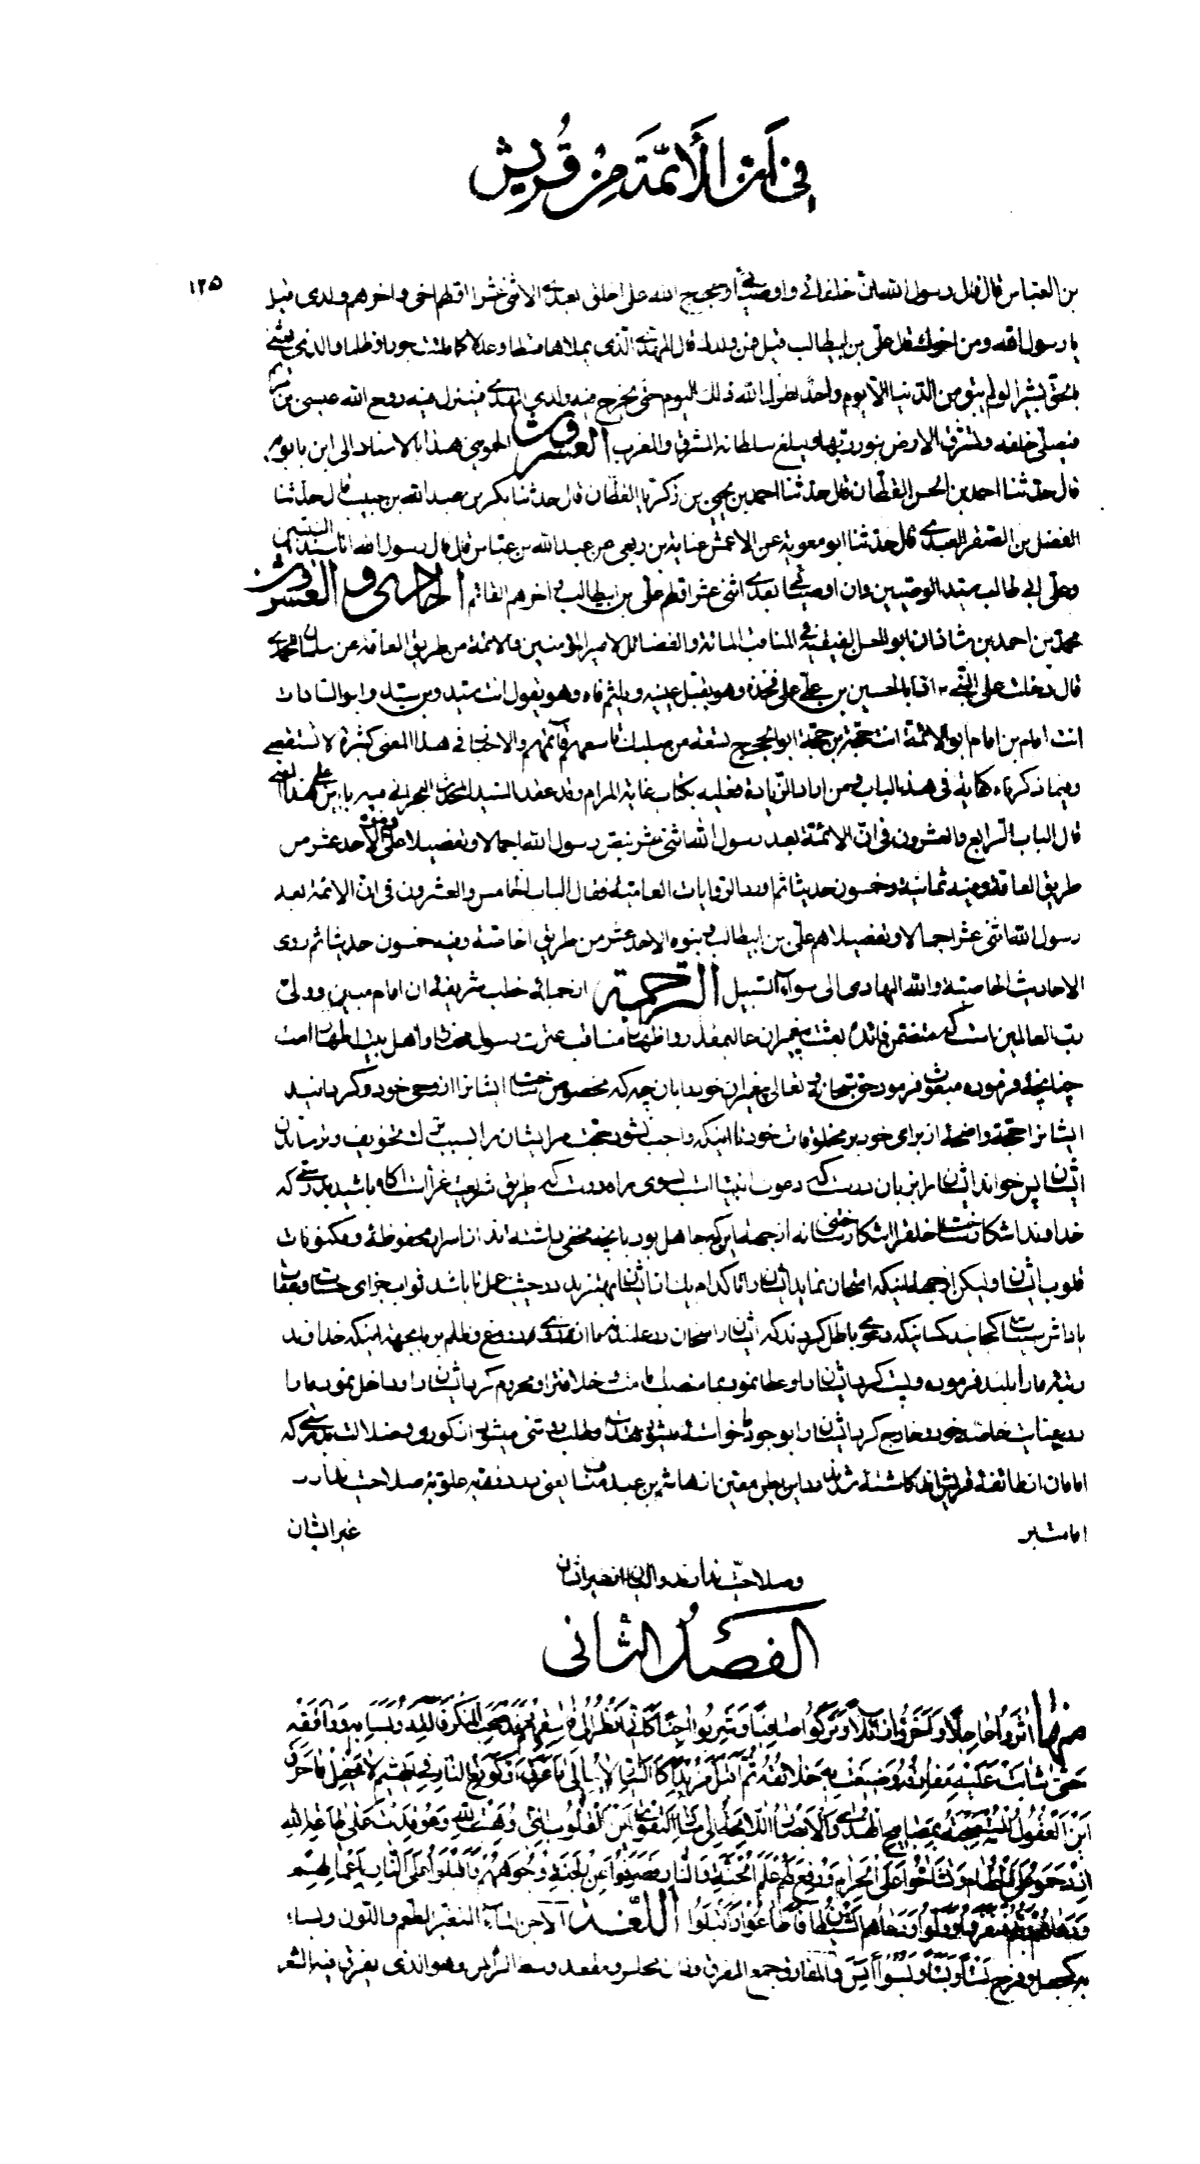 في أن الأئمة من قريش
١٢٥
بن العباس قال قال رسول الله ان خلفائي و اوصيائي و حجج الله على الخلق بعدي الاثنى عشر اولهم اخي و اخرهم ولدي قيل
يا رسول الله ومن اخوك قال علي بن ابيطالب قيل فمن ولدك قال المهدي الذي يملاها قسطا وعدلا كما ملئت جورا و ظلما والذي بعثني
بالحق بشيرا لو لم يبق من الدنيا الا يوم واحد لطول الله ذلك اليوم حتى يخرج فيه ولدي المهدي فينزل فيه روح الله عيسى بن مريم
فيصلي خلفه وتشرق الارض بنور ربها ويبلغ سلطانه المشرق والمغرب العشرون الحمويني هذا بالاسناد الى ابن بابويه
قال حدثنا احمد بن الحسن القطان قال حدثنا احمد بن يحيى بن زكريا القطان قال حدثنا بكر بن عبد الله بن حبيب قال حدثنا
الفضل بن الصقر العبدي قال حدثنا ابو معوية عن الاعمش عن عباية بن ربعي عن عبد الله بن عباس قال قال رسول الله انا سيد النبيين
وعلي بن ابي طالب سيد الوصيين وان اوصيائي بعدي اثنى عشر اولهم علي بن ابيطالب و اخرهم القائم الحادي و العشرون
محمد بن احمد بن شاذان ابو الحسن الفقيه في المناقب المائة والفضائل لامير المؤمنين والائمة من طريق العامة عن سلمان المحمدي
قال دخلت على النبي اذا بالحسين بن علي على فخذه وهو يقبل عينيه ويلثم فاه وهو يقول انت سيد وبن سيد وابو السادات
انت امام بن امام ابو الائمة انت حجة بن حجة ابو الحجج تسعة من صلبك تاسعهم قائمهم والاخبار في هذا المعنى كثيرة لا تستقصى
وفيما ذكرناه كفاية في هذا الباب ومن اراد الزيادة فعليه بكتاب غاية المرام وقد عقد السيد المحدث البحراني فيه بابين على هذا المعنى
قال الباب الرابع والعشرون في ان الائمة بعد رسول الله اثنى عشر بنص رسول الله اجمالا وتفصيلا علي و بنوه الاحد عشر من
طريق العامة وفيه ثمانية وخمسون حديثا ثم اورد الروايات العامية وقال الباب الخامس والعشرون في ان الائمة بعد
رسول الله اثنى عشر اجمالا وتفصيلا هم علي بن ابيطالب و بنوه الاحد عشر من طريق الخاصة وفيه خمسون حديثا ثم روى
الاحاديث الخاصية والله الهادي الى سواء السبيل الترجمة از جملة خطب شريفه ان امام مبين وولي
رب العالمين است كه متضمن فائده بعثت پيغمبران عاليمقدار و اظهار مناقب عترت رسول مختار و اهل بيت اطهار است
چنانچه فرموده مبعوث فرمود حق سبحانه و تعالى پيغمبران خود را بان چه كه مخصوص ساخت ايشان را از وحي خود و گردانيد
ايشان را حجة واضحه از براى خود بر مخلوقات خود تا اينكه واجب نشود حجت مر ايشان را بسبب ترك تخويف و ترساندن
ايشان پس خواند ايشان را بزبان راست كه دعوت انبيا است بسوى راه درست كه طريق شريعت غرا است اگاه باشيد بدرستى كه
خداوند اشكار ساخت خلق را اشكار ساختنى نه از جهة اين كه جاهل بود بانچه مخفى داشته اند از اسرار محفوظه و مكنونات
قلوب ايشان وليكن از جهة اينكه امتحان نمايد ايشان را تا كدام يك از ايشان بهترند در حيثيت عمل تا باشد ثواب جزاى حسنات و عقاب
پاداش سيئات كجايند كسانيكه دعوى باطل كردند كه ايشان راسخان در علمند نه ما از روى دروغ و ظلم بر ما بجهة اينكه خداوند
رتبه ما را بلند فرموده و پست كرد ايشان را و عطا نموده بما منصب امامت و خلافت را و محروم كرد ايشان را و داخل نموده ما را
در عنايت خاصه خود و خارج كرد ايشان را بوجود ما خواسته ميشود هدايت و طلب روشنى ميشود از كورى و ضلالت بدرستى كه
امامان از طائفه قريش اند كاشته شدند در اين بطن معين از هاشم بن عبد مناف يعنى در دفقه علويه صلاحيت ندارد
امامت بر غير ايشان
و صلاحيت ندارند واليان از غير ايشان
الفصل الثاني
منها آثَرُوا عاجِلًا وَ أَخَّرُوا آجِلًا وَ تَرَكُوا صافِيًا وَ شَرِبُوا آجِنًا كَأَنّي أَنْظُرُ إِلى فاسِقِهِمْ وَ قَدْ صَحِبَ الْمُنْكَرَ فَأَلِفَهُ وَ بَسِئَ بِهِ وَ وافَقَهُ
حَتّى شابَتْ عَلَيْهِ مَفارِقُهُ وَ صُبِغَتْ بِهِ خَلائِقُهُ ثُمَّ أَقْبَلَ مُزْبِدًا كَالتَّيّارِ لا يُبالي ما غَرَّقَ أَوْ كَوَقْعِ النّارِ فِي الْهَشيمِ لا يَحْفِلُ ما حَرَّقَ
أَيْنَ الْعُقُولُ الْمُسْتَصْبِحَةُ بِمَصابيحِ الْهُدى وَ الْأَبْصارُ اللّامِحَةُ إِلى مَنارِ التَّقْوى أَيْنَ الْقُلُوبُ الَّتي وُهِبَتْ لِلّهِ وَ عُوقِدَتْ عَلى طاعَةِ اللهِ
اِزْدَحَمُوا عَلَى الْحُطامِ وَ تَشاحُّوا عَلَى الْحَرامِ وَ رُفِعَ لَهُمْ عَلَمُ الْجَنَّةِ وَ النّارِ فَصَرَفُوا عَنِ الْجَنَّةِ وُجُوهَهُمْ وَ أَقْبَلُوا إِلَى النّارِ بِأَعْمالِهِمْ
وَ دَعاهُمْ رَبُّهُمْ فَنَفَرُوا وَ وَلَّوْا وَ دَعاهُمُ الشَّيْطانُ فَاسْتَجابُوا وَ أَقْبَلُوا اللغة الآجن الماء المتغير الطعم واللون وبساء
به كجعل وفرح بسا وبساء وبسوءا انس والمفارق جمع المفرق كمجلس ومقعد وسط الراس وهو الذي يفرق فيه الشعر